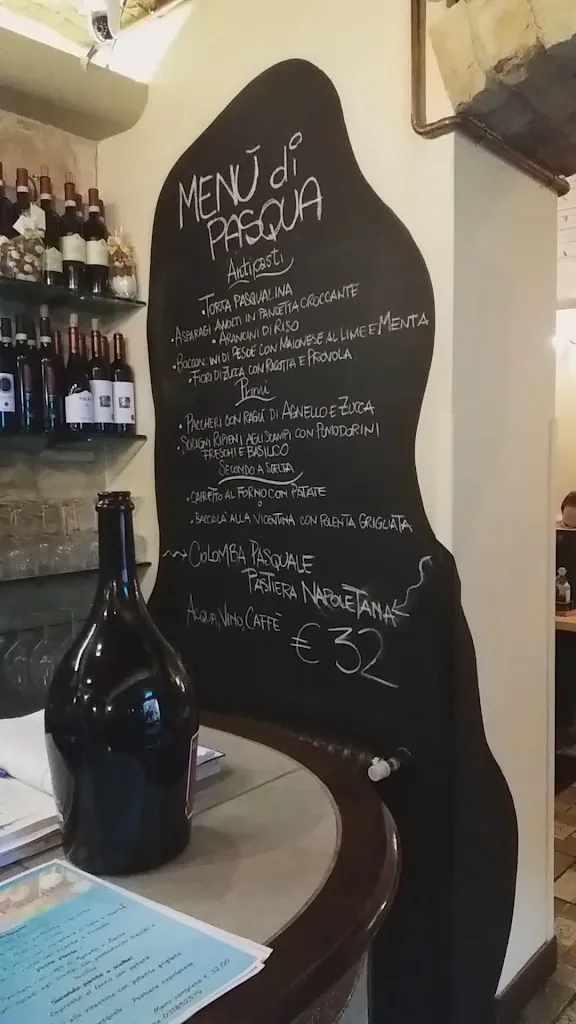 MENÙ di
PASQUA
Antipasti
• TORTA PASQUALINA
• ASPARAGI AVVOLTI IN PANCETTA CROCCANTE
• ARANCINI DI RISO
• BOCCONCINI DI PESCE CON MAIONESE AL LIME E MENTA
• FIORI DI ZUCCA CON RICOTTA E PROVOLA
Primi
• PACCHERI CON RAGÙ DI AGNELLO E ZUCCA
• SCRIGNI RIPIENI AGLI SCAMPI CON POMODORINI
FRESCHI E BASILICO
SECONDO A SCELTA
• CAPRETTO AL FORNO CON PATATE
O
• BACCALÀ ALLA VICENTINA CON POLENTA GRIGLIATA
COLOMBA PASQUALE
PASTIERA NAPOLETANA
ACQUA, VINO, CAFFÈ
€ 32
Capretto al forno con patate
Pastiera napoletana
Menu completo € 32,00